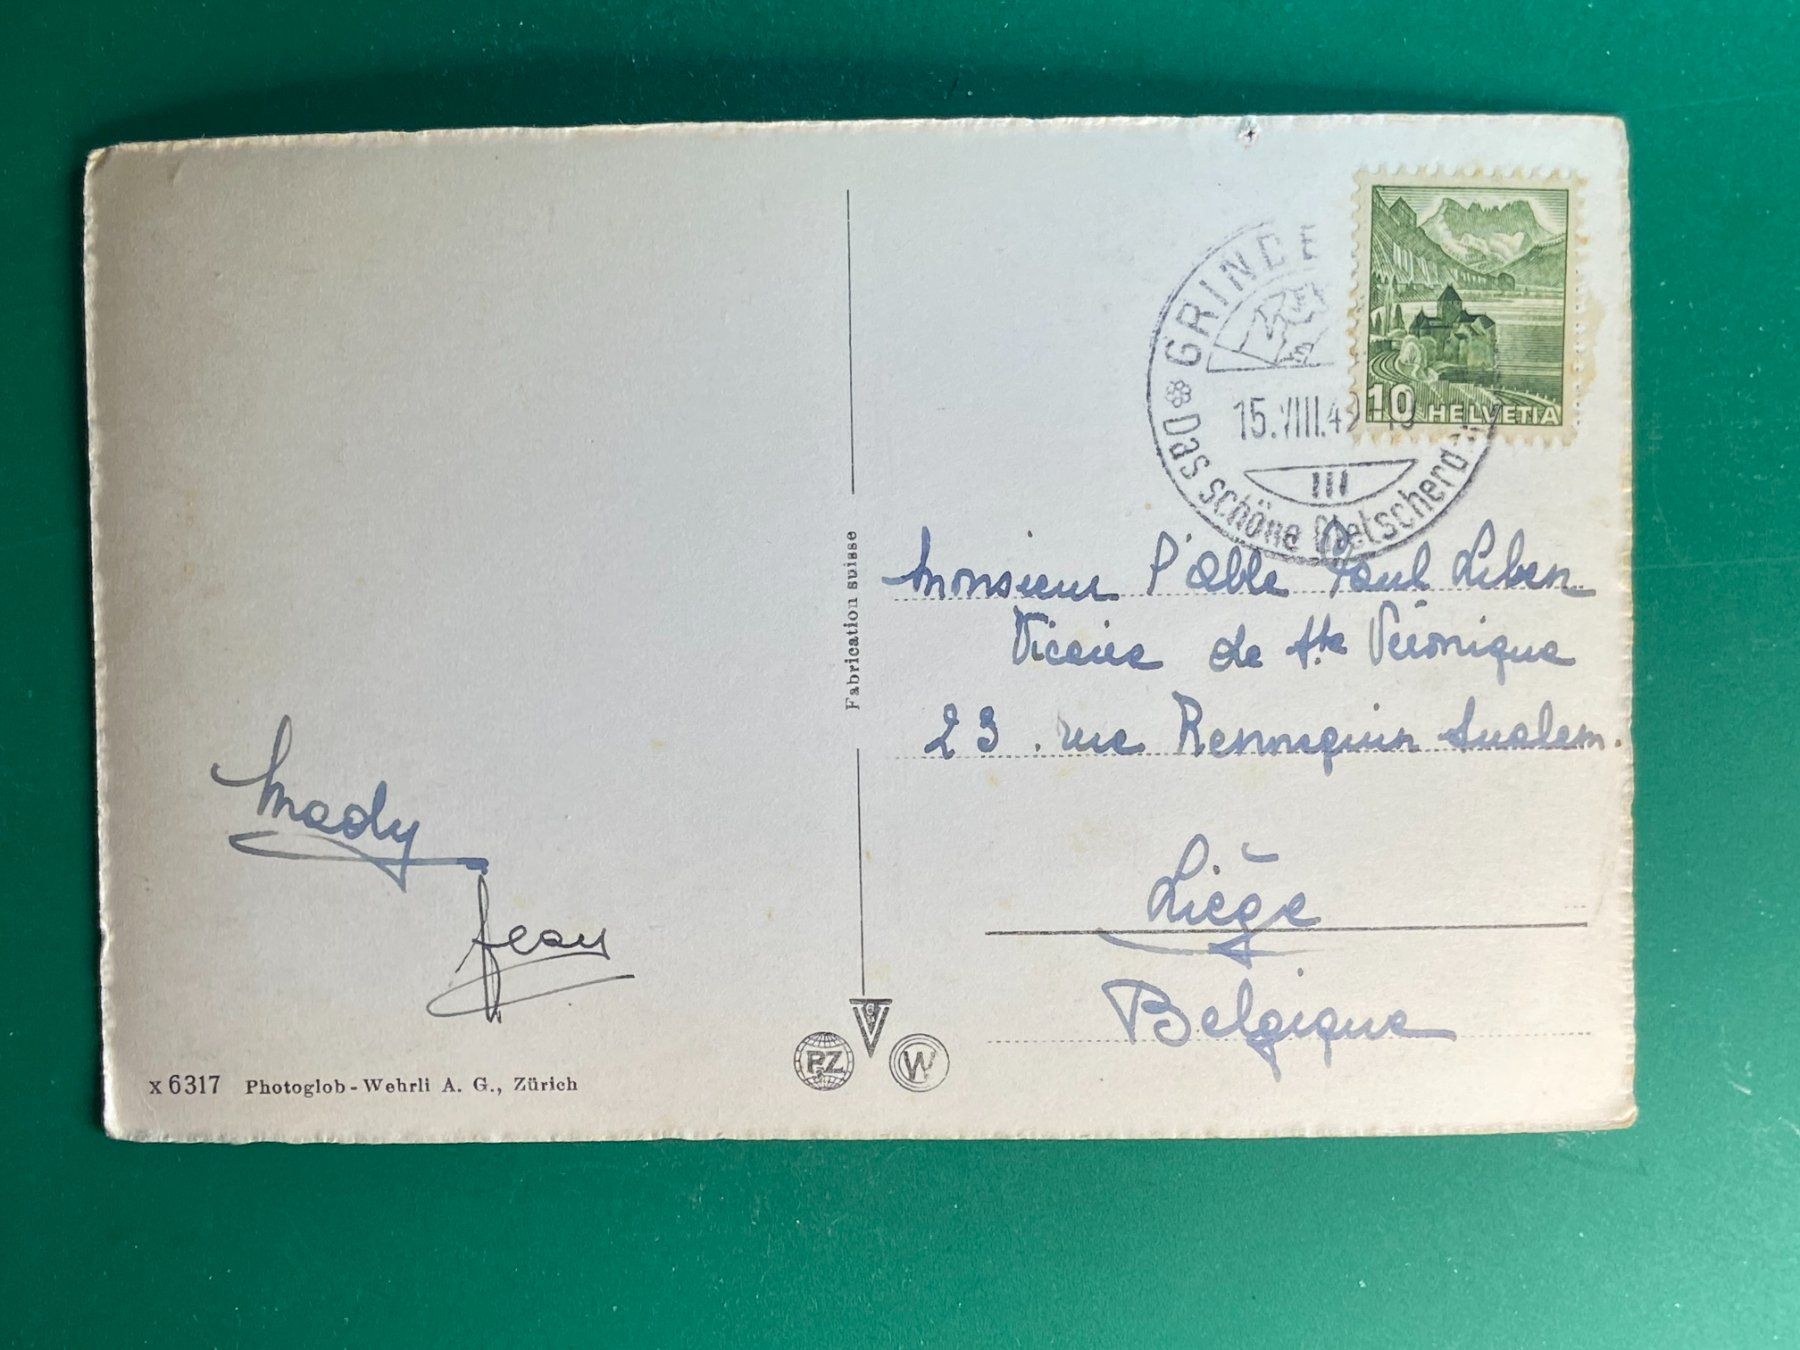 GRINDE
15.VIII.49
Das schöne Gletscherd
10 HELVETIA
Fabrication suisse
Monsieur l'abbé Paul Liben
Vicaire de Ste Véronique
23. rue Rennequin Sualem.
Liège
Belgique
Mady
Jean
PZ
W
x 6317 Photoglob-Wehrli A. G., Zürich